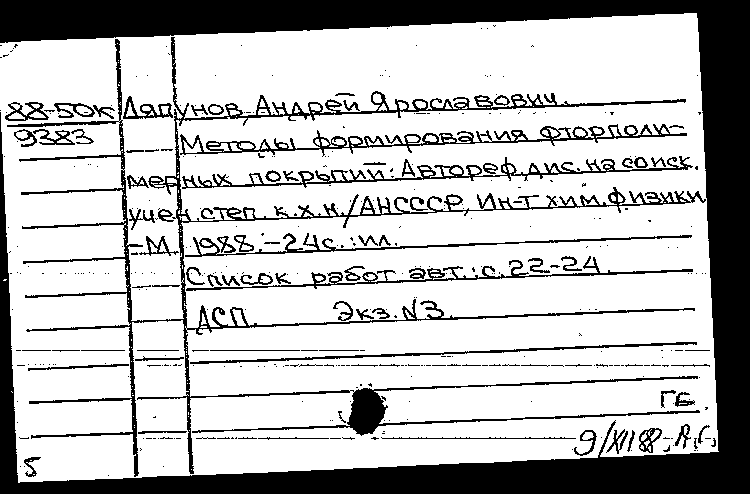 88-50к Ляпунов, Андрей Ярославович.
9383 Методы формирования фторполи-
мерных покрытий: Автореф. дис. на соиск.
учен. степ. к.х.н. / АН СССР, Ин-т хим. физики
-М. 1988.-24с.:ил.
Список работ авт.: с. 22-24.
ДСП. Экз. N3.
ГБ.
9/XII 88, А.Г.
5